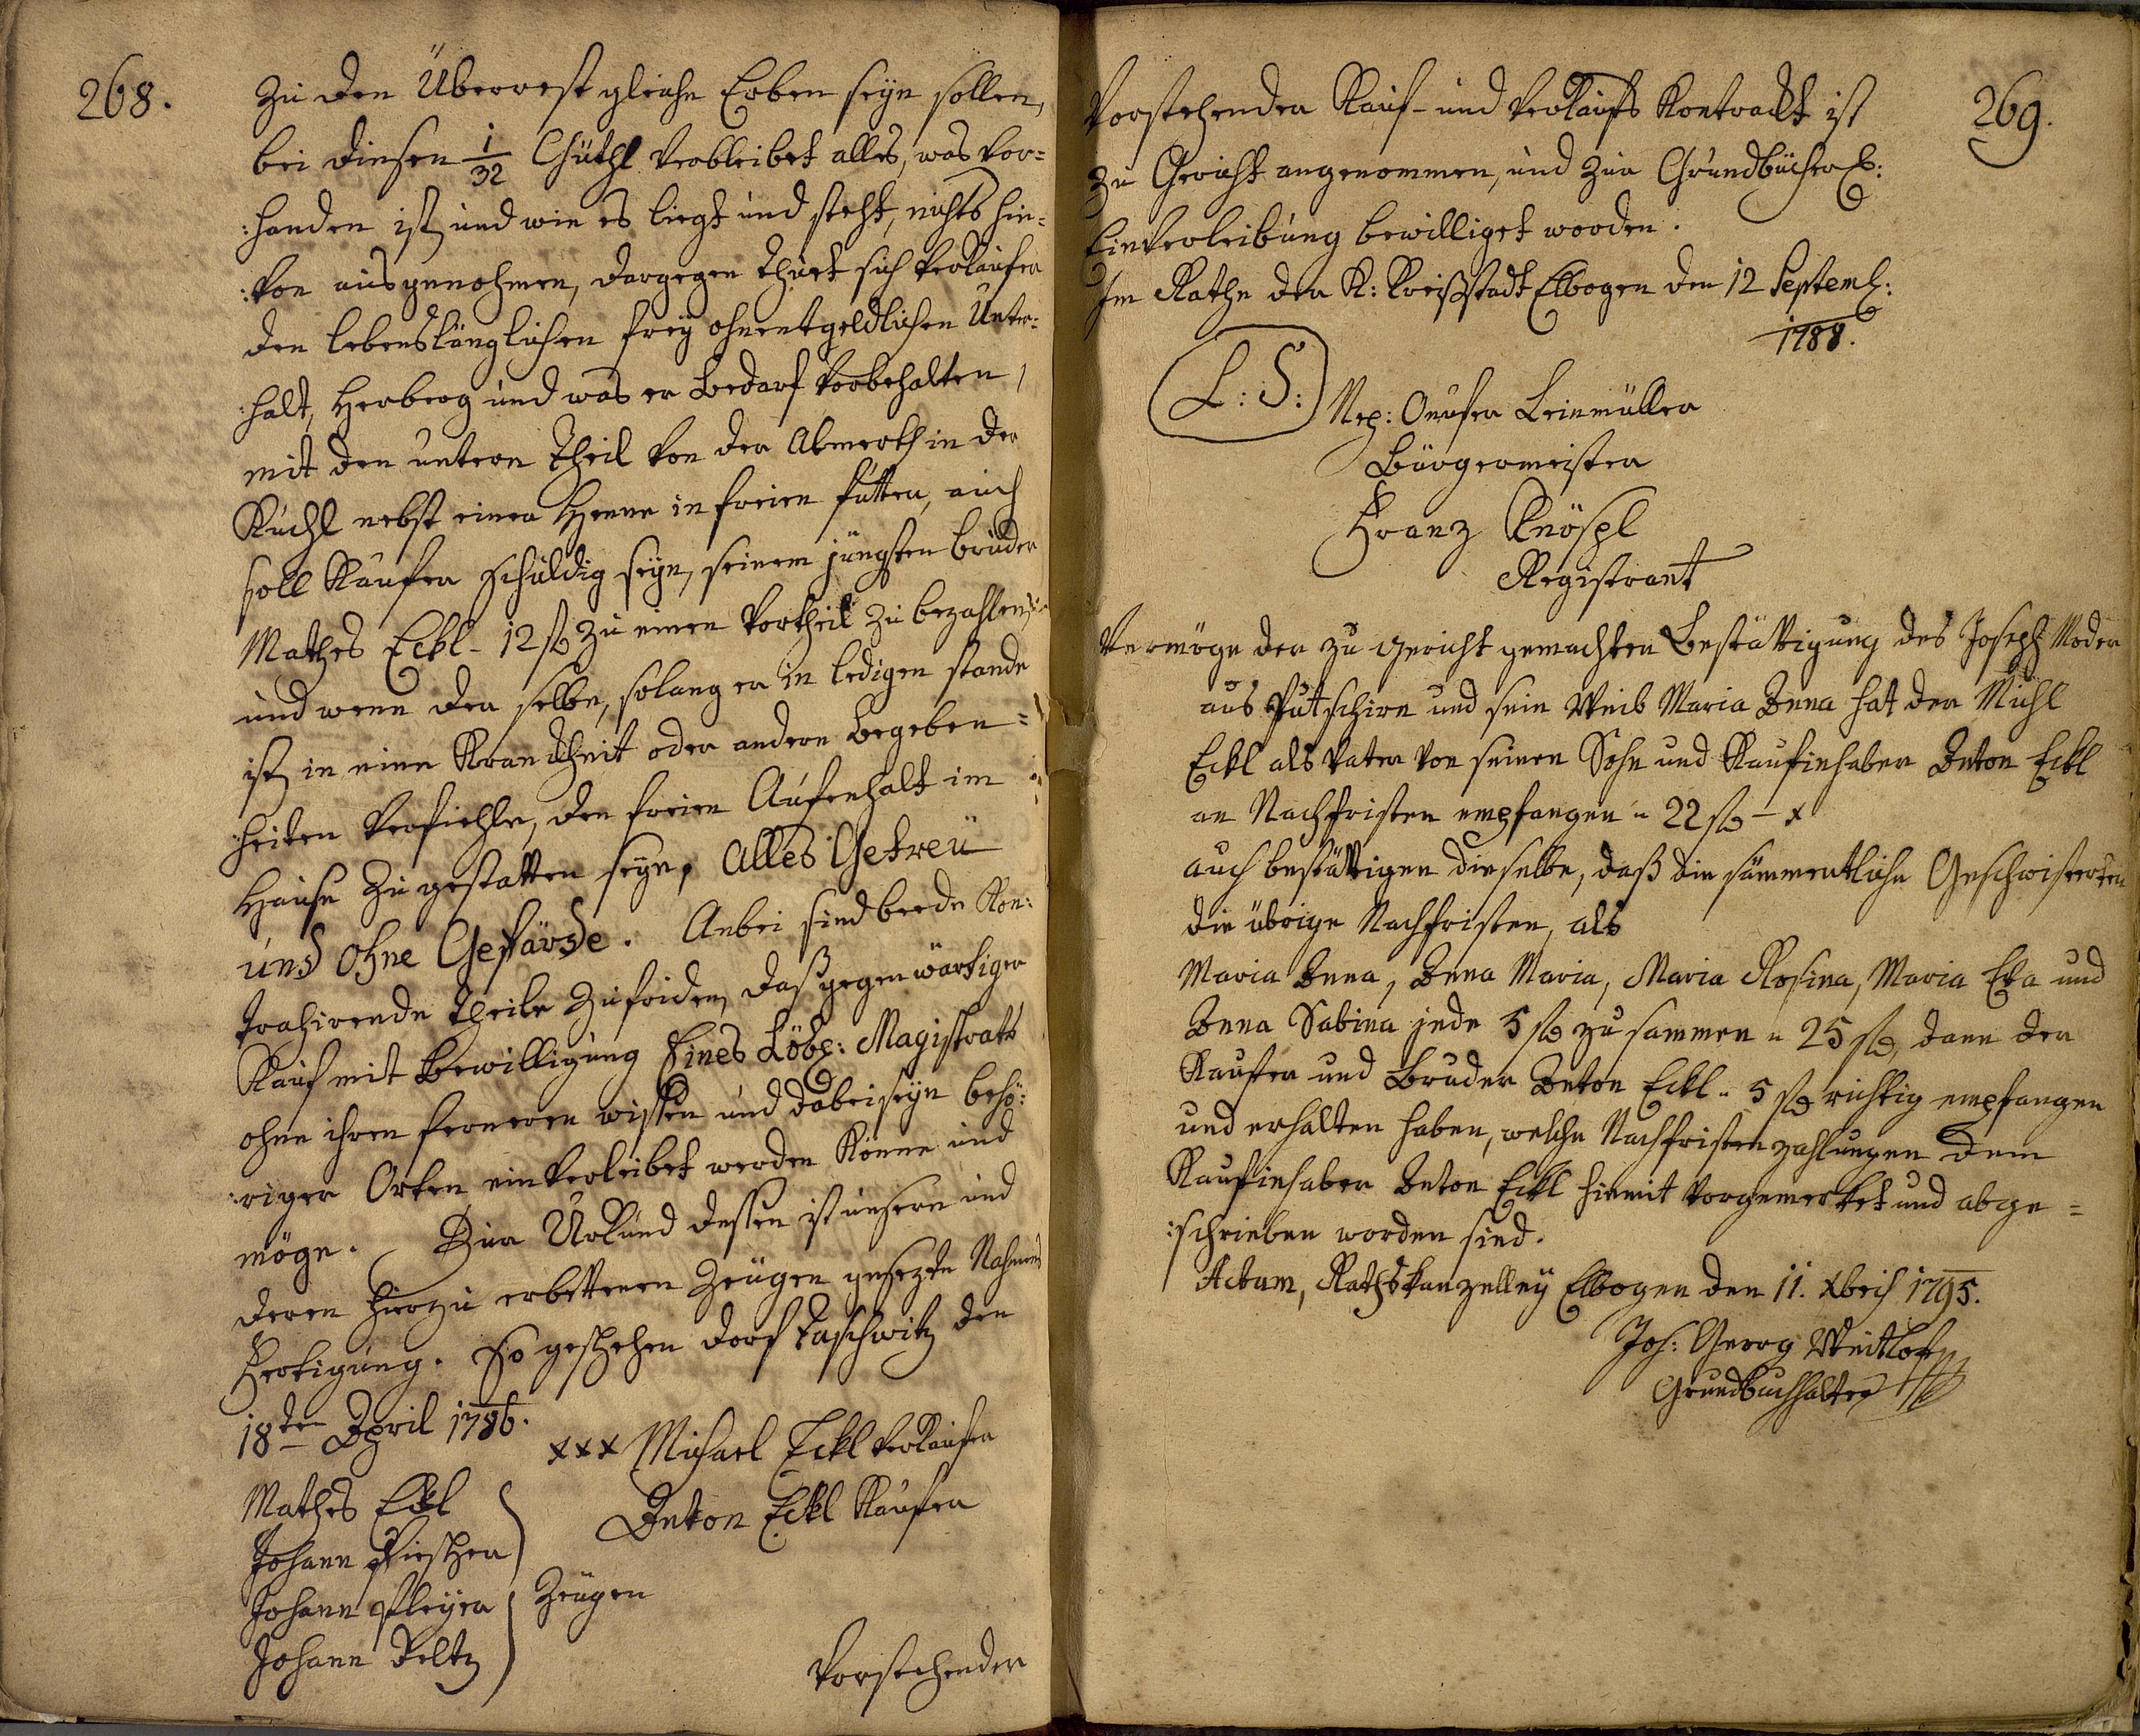 268.
Zu den Überrest gleiche Erben seyn sollen,
bei diesen 1/32 Güthl verbleibet alles, was vor=
:handen ist, und wie es liegt und steht, nichts hin=
:von ausgenohmen, dargegen thuet sich Verkäufer
den lebenslänglichen frey ohnentgeldlichen Unter=
:halt, Herberg und was er bedarf vorbehalten,
mit den untern Theil von der Almerth in der
Kuchl nebst einer Henne in freien futter, auch
soll Käufer schuldig seyn, seinem jüngsten bruder
Mathes Eckl - 12 f zu einen Vortheil zu bezahlen,
und wenn der selbe, solang er in ledigen stande
ist, in eine Kranckheit oder andere begeben=
:heiten verfiehle, den freien Aufenhalt im
Hause zu gestatten seyn, Alles Getreu
und ohne Gefärde. Anbei sind beede Kon:
trahirende Theile zufriden, daß gegenwärtiger
Kauf mit bewilligung Eines Löbl: Magistrats
ohne ihren ferneren wissen und dabeiseyn behö:
:riger Orten einverleibet werden könne und
möge. Zur Urkund dessen ist unsere und
deren hierzu erbettenen Zeugen gesezte Nahmens
Fertigung. So geschehen dorf Taschwitz den
18ten April 1786.
xxx Michael Eckl Verkäufer
Anton Eckl Käufer
Mathes Eckl
Johann
Johann Pleyer
Johann
Zeugen
Vorstehender
269.
Vorstehender Kauf- und Verkaufs Kontrackt ist
zu Gericht angenommen, und zur Grundbücherl:
Einverleibung bewilliget worden.
Im Rathe der K: Kreißstadt Elbogen den 12 Septemb:
1788.
L: S:
Nep: Onufer Leinmüller
Bürgermeister
Franz Knöspl
Registrant
Vermöge der zu gericht gemachten Bestättigung des Joseph Moder
aus Putschirn und sein Weib Maria Anna hat der Michl
Eckl als Vater von seinen Sohn und Kaufinhaber Anton Eckl
an Nachfristen empfangen " 22 f - x
auch bestättigen dieselbe, daß die sämmentliche Geschwisterten
die übrige Nachfristen, als
Maria Anna, Anna Maria, Maria Rosina, Maria Eva und
Anna Sabina jede 5 f zusammen " 25 f, dann der
Kaufer und Bruder Anton Eckl " 5 f richtig empfangen
und erhalten haben, welche Nachfristenzahlungen dem
Kaufinhaber Anton Eckl hiemit vorgemerket und abge=
:schrieben worden sind.
Actum, Rathskanzelley Elbogen den 11. Xbris 1795.
Joh: Georg Weitlof
Grundbuchhalter